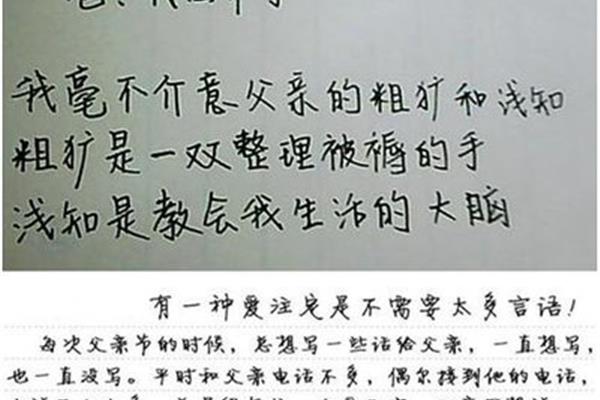 我毫不介意父亲的粗犷和浅知
粗犷是一双整理被褥的手
浅知是教会我生活的大脑
有一种爱注定是不需要太多言语!
每次父亲节的时候,总想写一些话给父亲,一直想写,
也一直没写。平时和父亲电话不多,偶尔接到他的电话,